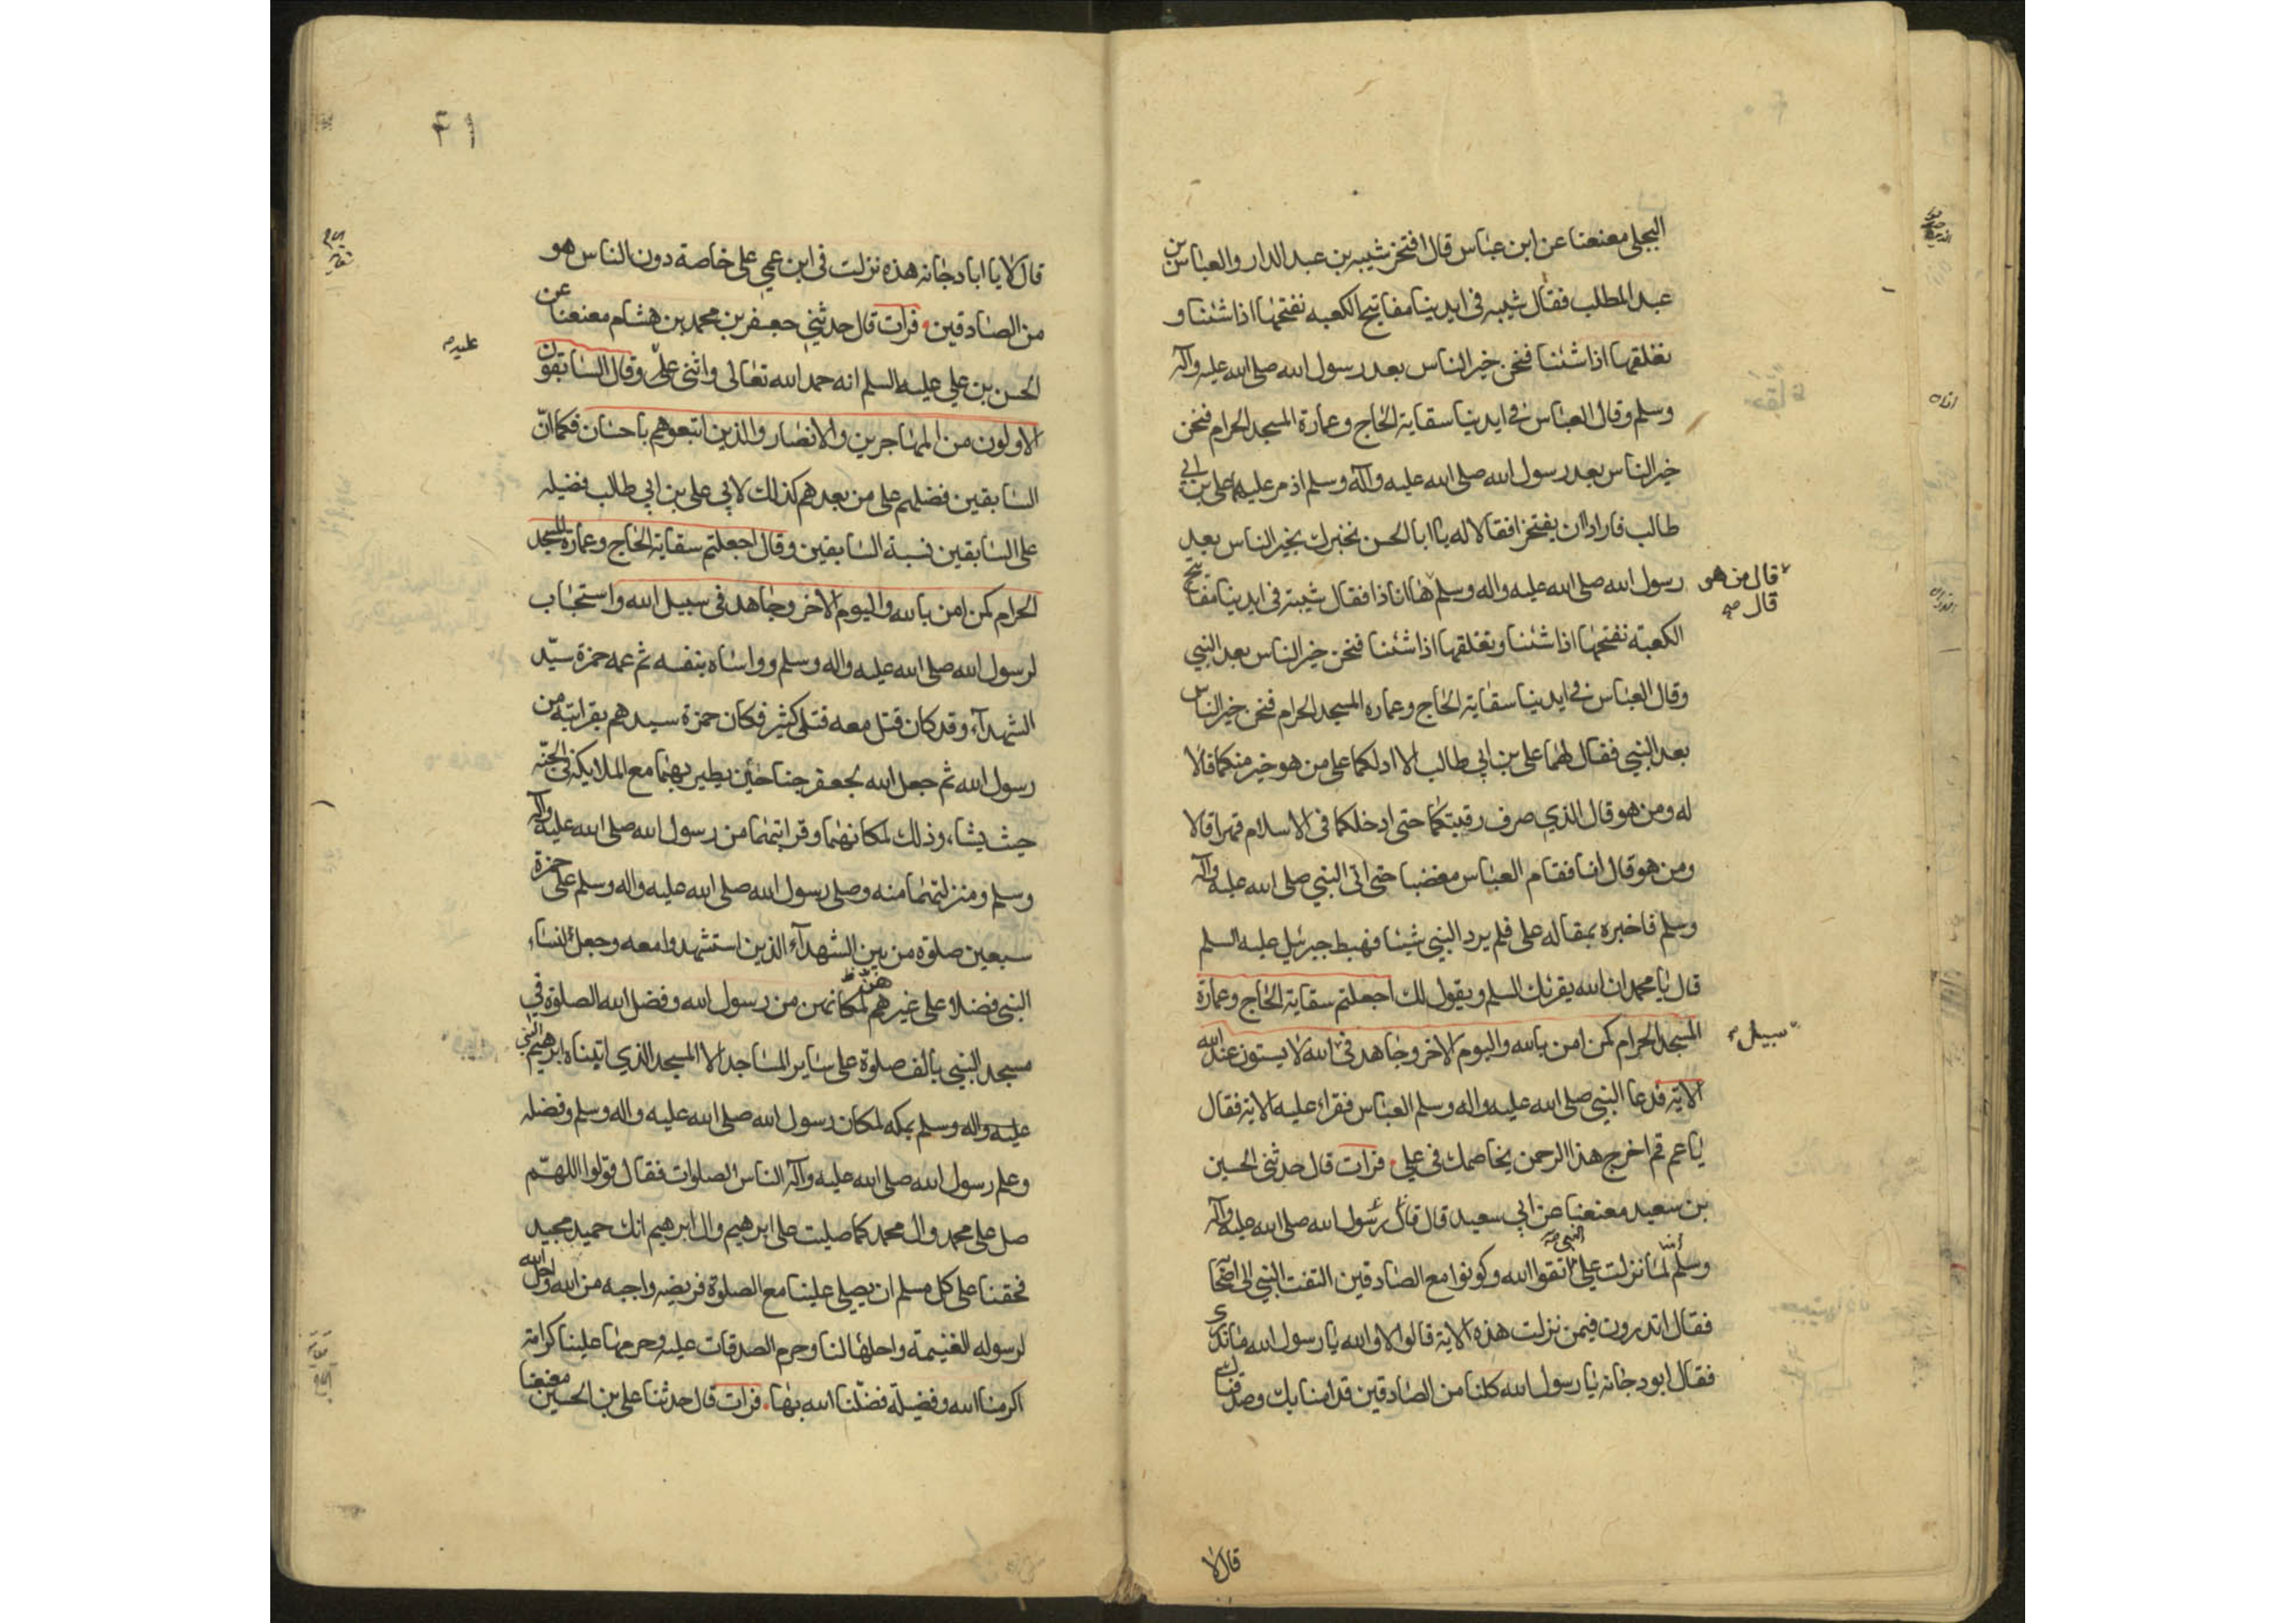 البجلي معنعنا عن ابن عباس قال افتخر شيبه بن عبد الدار والعباس بن
عبد المطلب فقال شيبه في ايدينا مفاتيح الكعبه نفتحها اذا شئنا و
نغلقها اذا شئنا فنحن خير الناس بعد رسول الله صلى الله عليه وآله
وسلم وقال العباس في ايدينا سقاية الحاج وعمارة المسجد الحرام فنحن
خير الناس بعد رسول الله صلى الله عليه وآله وسلم اذ مر عليهم علي بن ابي
طالب فارادا ان يفتخرا فقالا له يا ابا الحسن نخبرك بخير الناس بعد
رسول الله صلى الله عليه واله وسلم ها انا ذا فقال شيبة في ايدينا مفاتيح
قال من هو
قال صح
الكعبة نفتحها اذا شئنا ونغلقها اذا شئنا فنحن خير الناس بعد النبي
وقال العباس في ايدينا سقاية الحاج وعماره المسجد الحرام فنحن خير الناس
بعد النبي فقال لهما علي بن ابي طالب الا ادلكما على من هو خير منكما قالا
له ومن هو قال الذي صرف رقبتكما حتى ادخلكما في الاسلام قهرا قالا
ومن هو قال انا فقام العباس مغضبا حتى اتى النبي صلى الله عليه وآله
وسلم فاخبره بمقاله على فلم يرد النبي شيئا فهبط جبرئيل عليه السلم
قال يا محمد ان الله يقرئك السلم ويقول لك اجعلتم سقاية الحاج وعمارة
المسجد الحرام كمن امن بالله واليوم الاخر وجاهد في الله لا يستون عند الله
سبيل
الاية فدعا النبي صلى الله عليه واله وسلم العباس فقراء عليه الاية فقال
يا عم قم اخرج هذا الرحمن يخاصمك في علي فرات قال حدثني الحسين
بن سعيد معنعنا عن ابي سعيد قال قال رسول الله صلى الله عليه وآله
وسلم لما نزلت علي اتقوا الله وكونوا مع الصادقين التفت النبي الى اصحا
النبي
فقال اتدرون فيمن نزلت هذه الاية قالوا لا والله يا رسول الله ما ندري
فقال ابو دجانه يا رسول الله كلنا من الصادقين قد امنا بك وصدقناك
قال لا
۴۱
قال لا يا ابا دجانه هذه نزلت في ابن عمي علي خاصة دون الناس هو
من الصادقين فرات قال حدثني جعفر بن محمد بن هشام معنعنا عن
الحسن بن علي عليه السلم انه حمد الله تعالى واثنى على وقال السابقون
عليه
الاولون من المهاجرين والانصار والذين اتبعوهم باحسان فكما ان
السابقين فضلهم على من بعدهم كذلك لابي علي بن ابي طالب فضيله
على السابقين نسبة السابقين وقال اجعلتم سقاية الحاج وعمارة المسجد
الحرام كمن امن بالله واليوم الاخر وجاهد في سبيل الله واستجاب
لرسول الله صلى الله عليه واله وسلم وواساه بنفسه ثم عمه حمزة سيد
الشهدآء وقد كان قتل معه قتلى كثير فكان حمزة سيدهم بقرابته من
رسول الله ثم جعل الله لجعفر جناحين يطير بهما مع الملايكة في الجنة
حيث يشاء وذلك لمكانهما وقرابتهما من رسول الله صلى الله عليه وآله
وسلم ومنزلتهما منه وصلى رسول الله صلى الله عليه واله وسلم على حمزة
سبعين صلوة من بين الشهدآء الذين استشهدوا معه وجعل لنساء
النبي فضلا على غيرهم لمكانهن من رسول الله وفضل الله الصلوة في
هن
مسجد النبي بالف صلوة على ساير المساجد الا المسجد الذي ابتناه ابرهيم النبي
عليه واله وسلم بمكه لمكان رسول الله صلى الله عليه واله وسلم وفضله
وعلم رسول الله صلى الله عليه وآله الناس الصلوات فقال قولوا اللهم
صل على محمد وال محمد كما صليت على ابرهيم وال ابرهيم انك حميد مجيد
فحقنا على كل مسلم ان يصلي علينا مع الصلوة فريضه واجبه من الله واحل الله
لرسوله الغنيمة واحلها لنا وحرم الصدقات عليه وحرمها علينا كرامة
اكرمنا الله وفضيلة فضلنا الله بها فرات قال حدثنا علي بن الحسين معنعنا